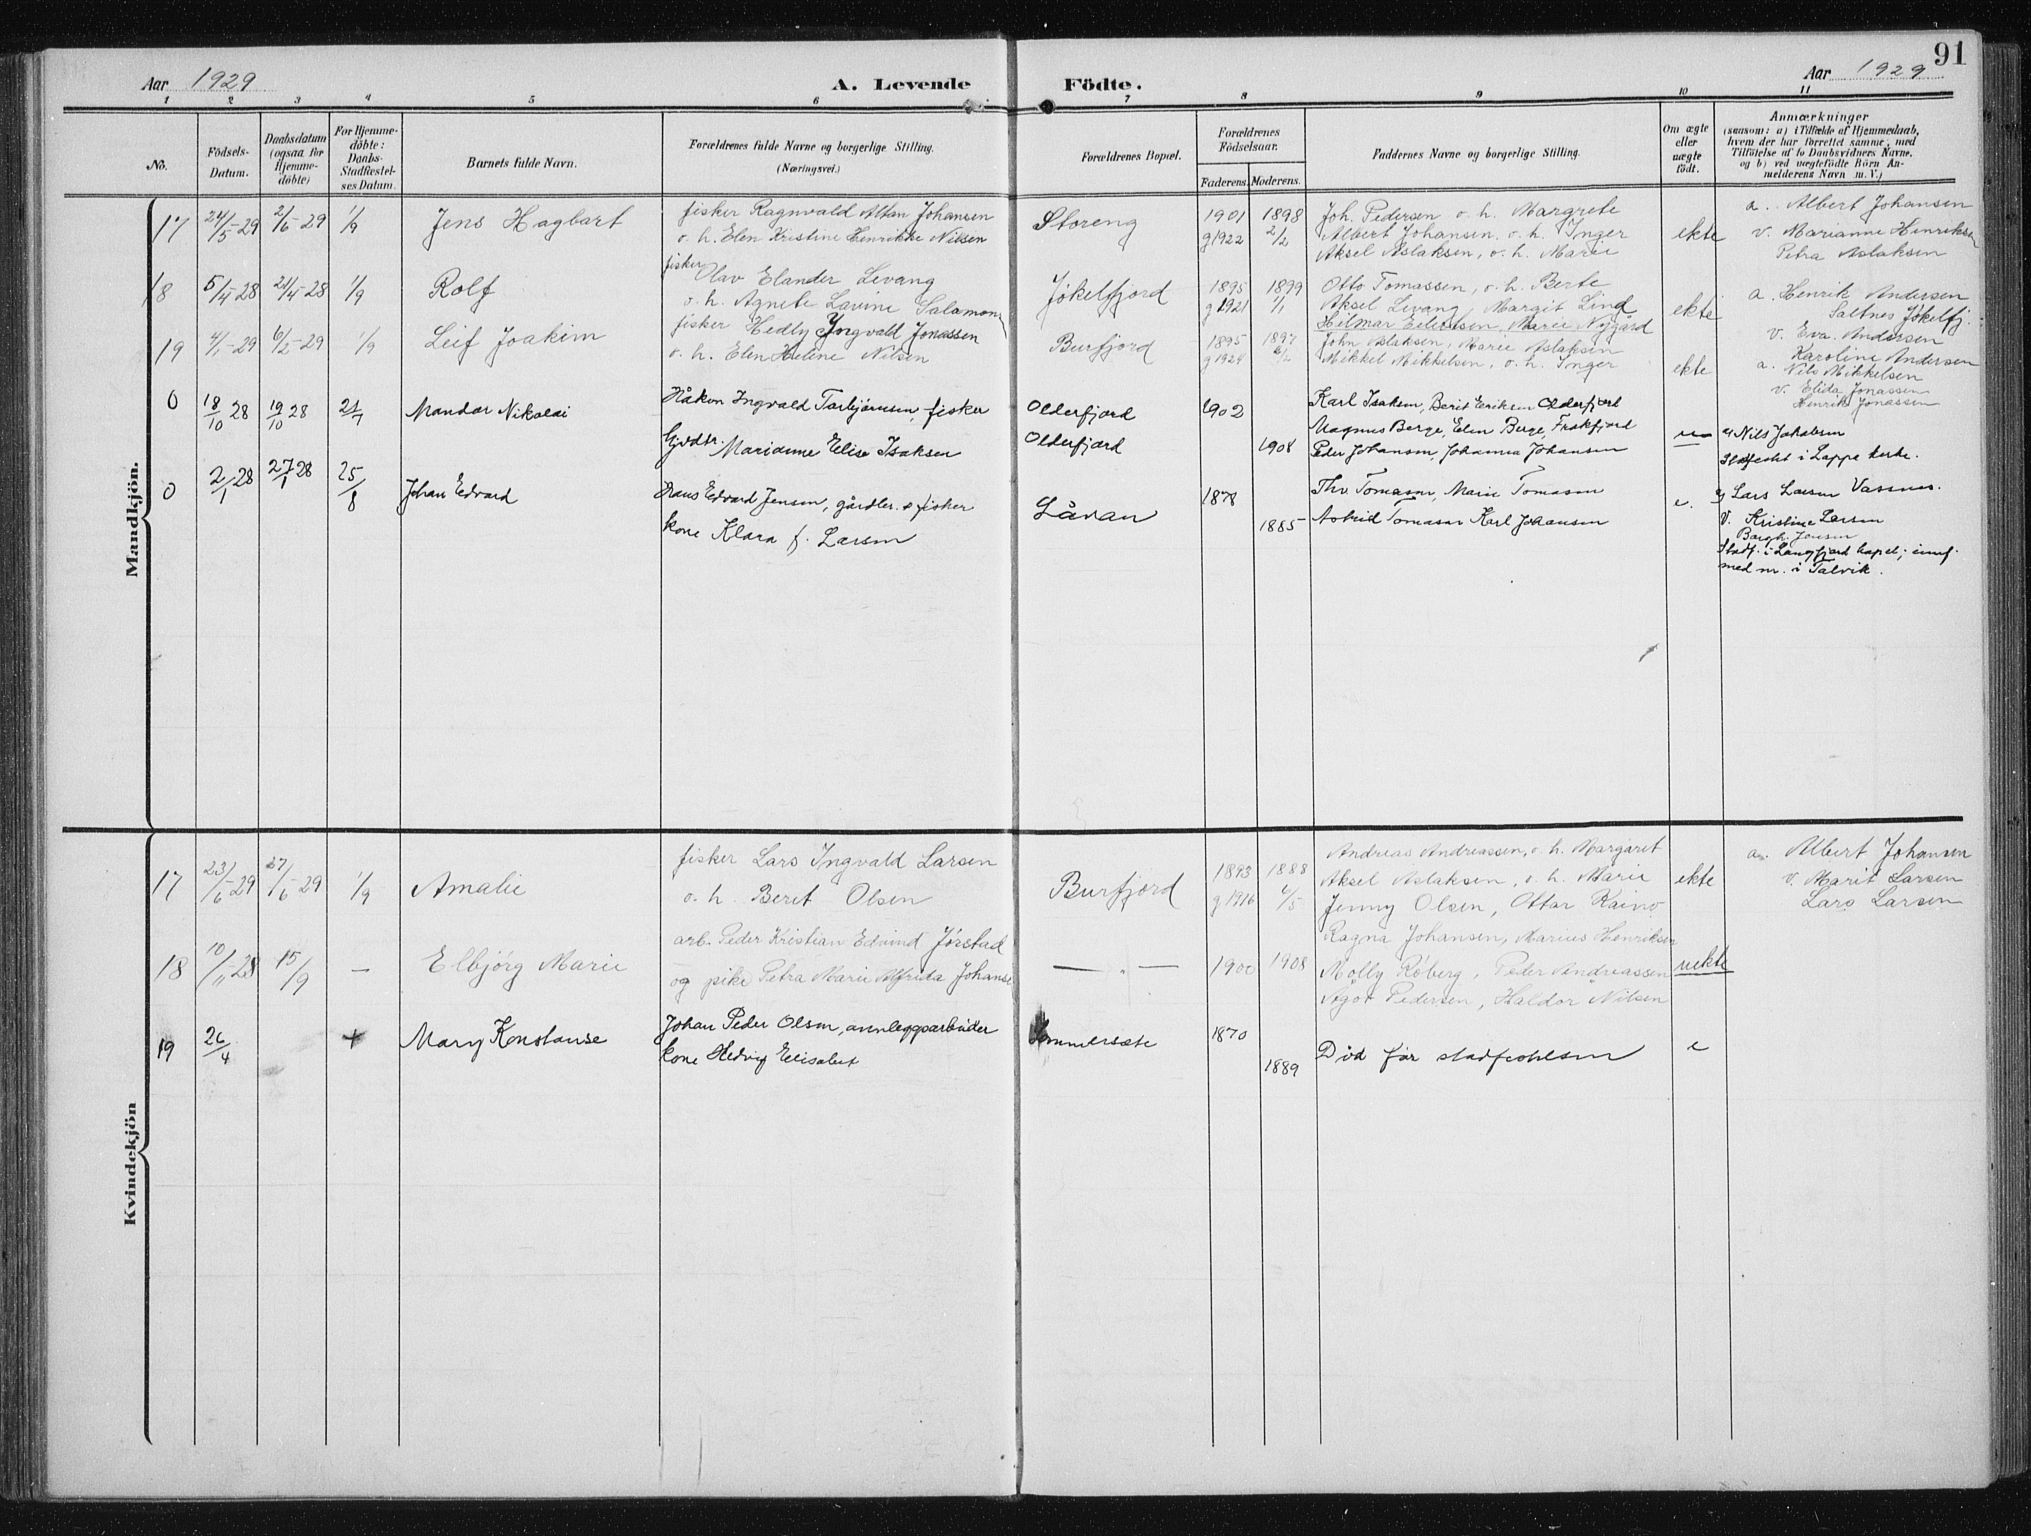 91
Aar 1929
A. Levende Födte.
Aar 1929
1 2 3 4 5 6 7 8 9 10 11
No.
Födsels-
Datum.
Daabsdatum
(ogsaa for
Hjemme-
döbte)
For Hjemme-
döbte:
Daabs-
Stadfæstel-
ses Datum.
Barnets fulde Navn.
Forældrenes fulde Navne og borgerlige Stilling.
(Næringsvei.)
Forældrenes Bopæl.
Forældrenes
Födselsaar.
Faderens. Moderens.
Faddernes Navne og borgerlige Stilling.
Om ægte
eller
uægte
født.
Anmærkninger
(saasom: a) i Tilfælde af Hjemmedaab,
hvem der har forrettet samme, med
Tilföielse af to Daabsvidners Navne,
og b) ved uægtefödte Börn An-
melderens Navn m. V.)
Mandkjön.
17 24/5-29 2/6-29 1/9 Jens Hagbart
fisker Ragnvald Altan Johansen
o. h. Elen Kristine Henrikke Nilsen
Storeng
1901 1898
g1922 2/2
Joh. Pedersen o. h. Margrete
Albert Johansen. o. h. Inger
Aksel Aslaksen, o. h. Marie
ekte
a. Albert Johansen
v. Marianne Henriksen
Petra Aslaksen
18 5/4-28 21/4-28 1/9 Rolf
fisker Olav Elander Levang
o. h. Agnete Lavine Salamon
Jökelfjord
1895 1899
g1921 1/1
Otto Tomassen, o. h. Berte
Aksel Levang, Margit Lind
Hilmar Eilertsen, Marie Nygård
ekte
a. Henrik Andersen
Saltnes Jøkelfj.
v. Eva Andersen
Karoline Andersen
19 4/1-29 6/2-29 1/9 Leif Joakim
fisker Hedly Yngvald Jonassen
o. h. Elen Helene Nilsen
Burfjord
1895 1897
g1924
John Aslaksen, Marie Aslaksen
Mikkel Mikkelsen, o. h. Inger
ekte
a. Nils Mikkelsen
v. Elida Jonassen
Henrik Jonassen
0 18/10 28 19/10 28 21/7 Mandor Nikolai
Håkon Ingvald Torbjørnsen, fisker
Gjvdtr. Marianne Elise Isaksen
Olderfjord
Olderfjord
1902
1908
Karl Isaksen, Berit Eriksen Olderfjord
Magnus Berge, Elen Berge, Frakfjord
Peder Johansen, Johanna Johansen
u
a/ Nils Jakobsen
Stadfecht i Lappe kirke.
0 2/1 28 27/1 28 25/8 Johan Edvard
Hans Edvard Jensen, gårdbr. & fisker
kone Klara f. Larsen
Låvan
1878
1885
Thv Tomasen, Marie Tomasen
Astrid Tomasen Karl Johansen
e.
a/ Lars Larsen Vassnes.
V. Kristine Larsen
Borgh. Jensen
Stadf. i Langfjord kapel; innf.
med nr. i Talvik.
Kvindekjön
17 23/6-29 27/6-29 1/9 Amalie
fisker Lars Ingvald Larsen
o. h. Berit Olsen
Burfjord
1893 1888
g1916 6/5
Andreas Andreassen, o. h. Margaret
Aksel Aslaksen, o. h. Marie
Jenny Olsen, Ottar Raino
ekte
a. Albert Johansen
v. Marit Larsen
Lars Larsen
18 10/11 28 15/9 — Elbjörg Marie
arb. Peder Kristian Edvind Jörstad
og pike Petra Marie Alfrida Johanse
— „ —
1900 1908
Ragna Johansen, Marius Henriksen
Molly Røberg, Peder Andreassen
Ågot Pedersen, Haldor Nilsen
uekte
19 26/4 + Mary Konstanse
Johan Peder Olsen, annleggsarbeider
kone Hedvig Elisabet
Sommersæte
1870
1889
Död før stadfestelsen
e